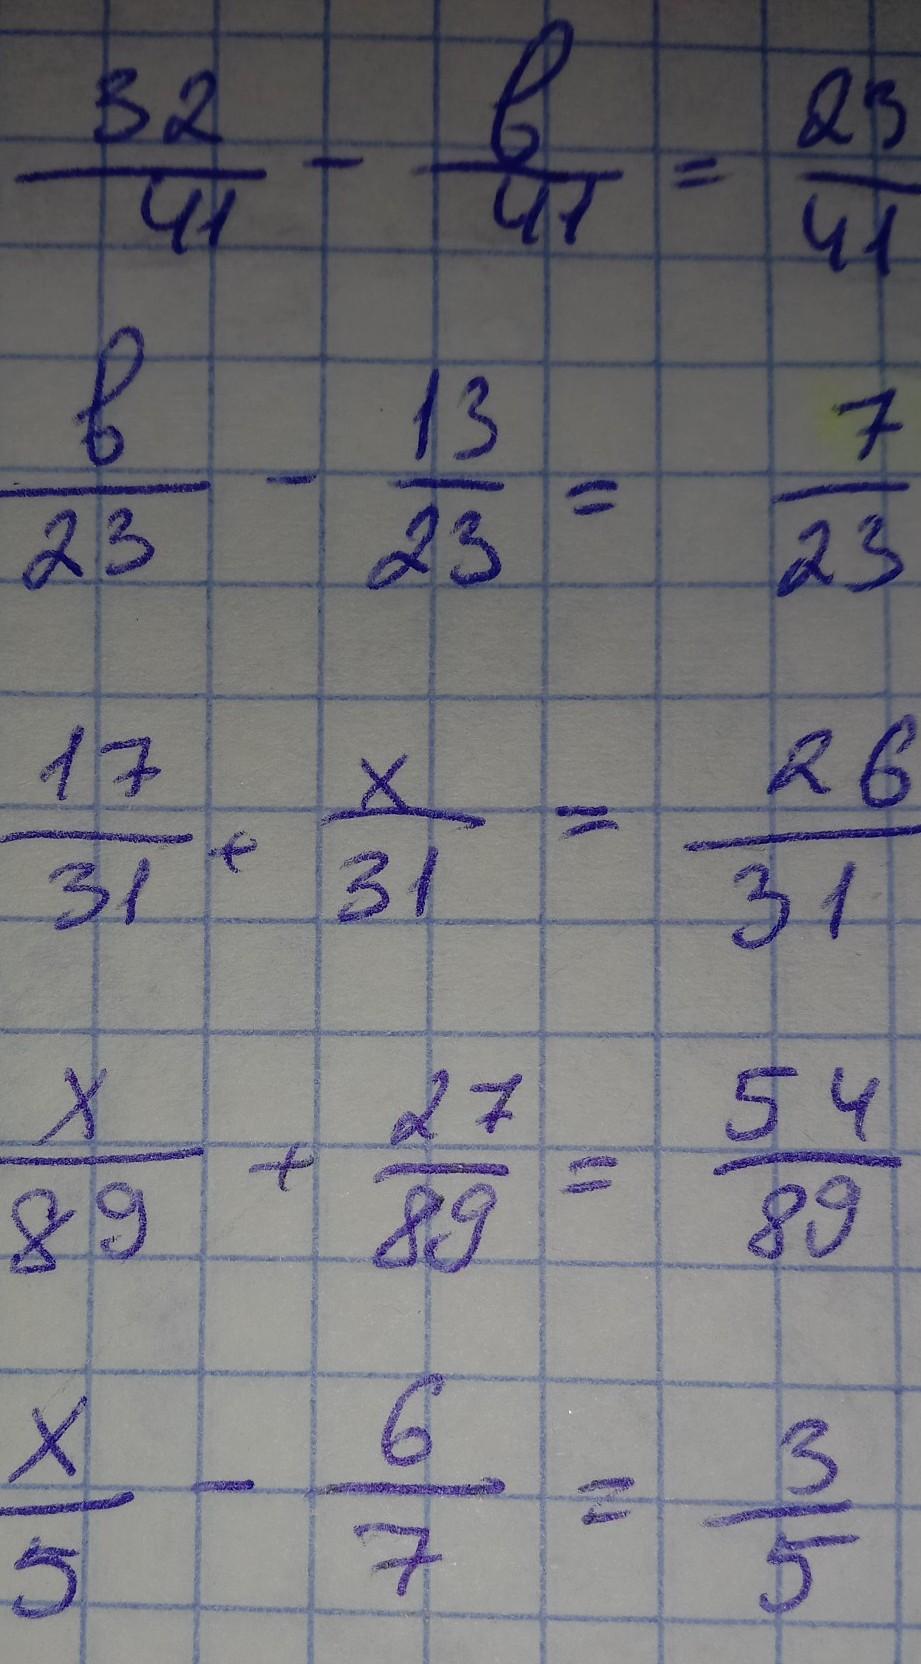 32/41 - b/41 = 23/41
b/23 - 13/23 = 7/23
17/31 + x/31 = 26/31
x/89 + 27/89 = 54/89
x/5 - 6/7 = 3/5